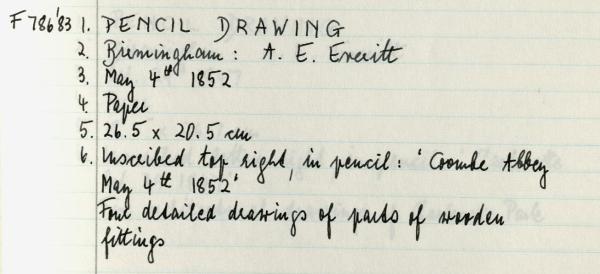 F786'83 1. PENCIL DRAWING
2. Birmingham: A. E. Everitt
3. May 4th 1852
4. Paper
5. 26.5 x 20.5 cm
6. Inscribed top right, in pencil: 'Coombe Abbey
May 4th 1852'
Four detailed drawings of parts of wooden
fittings